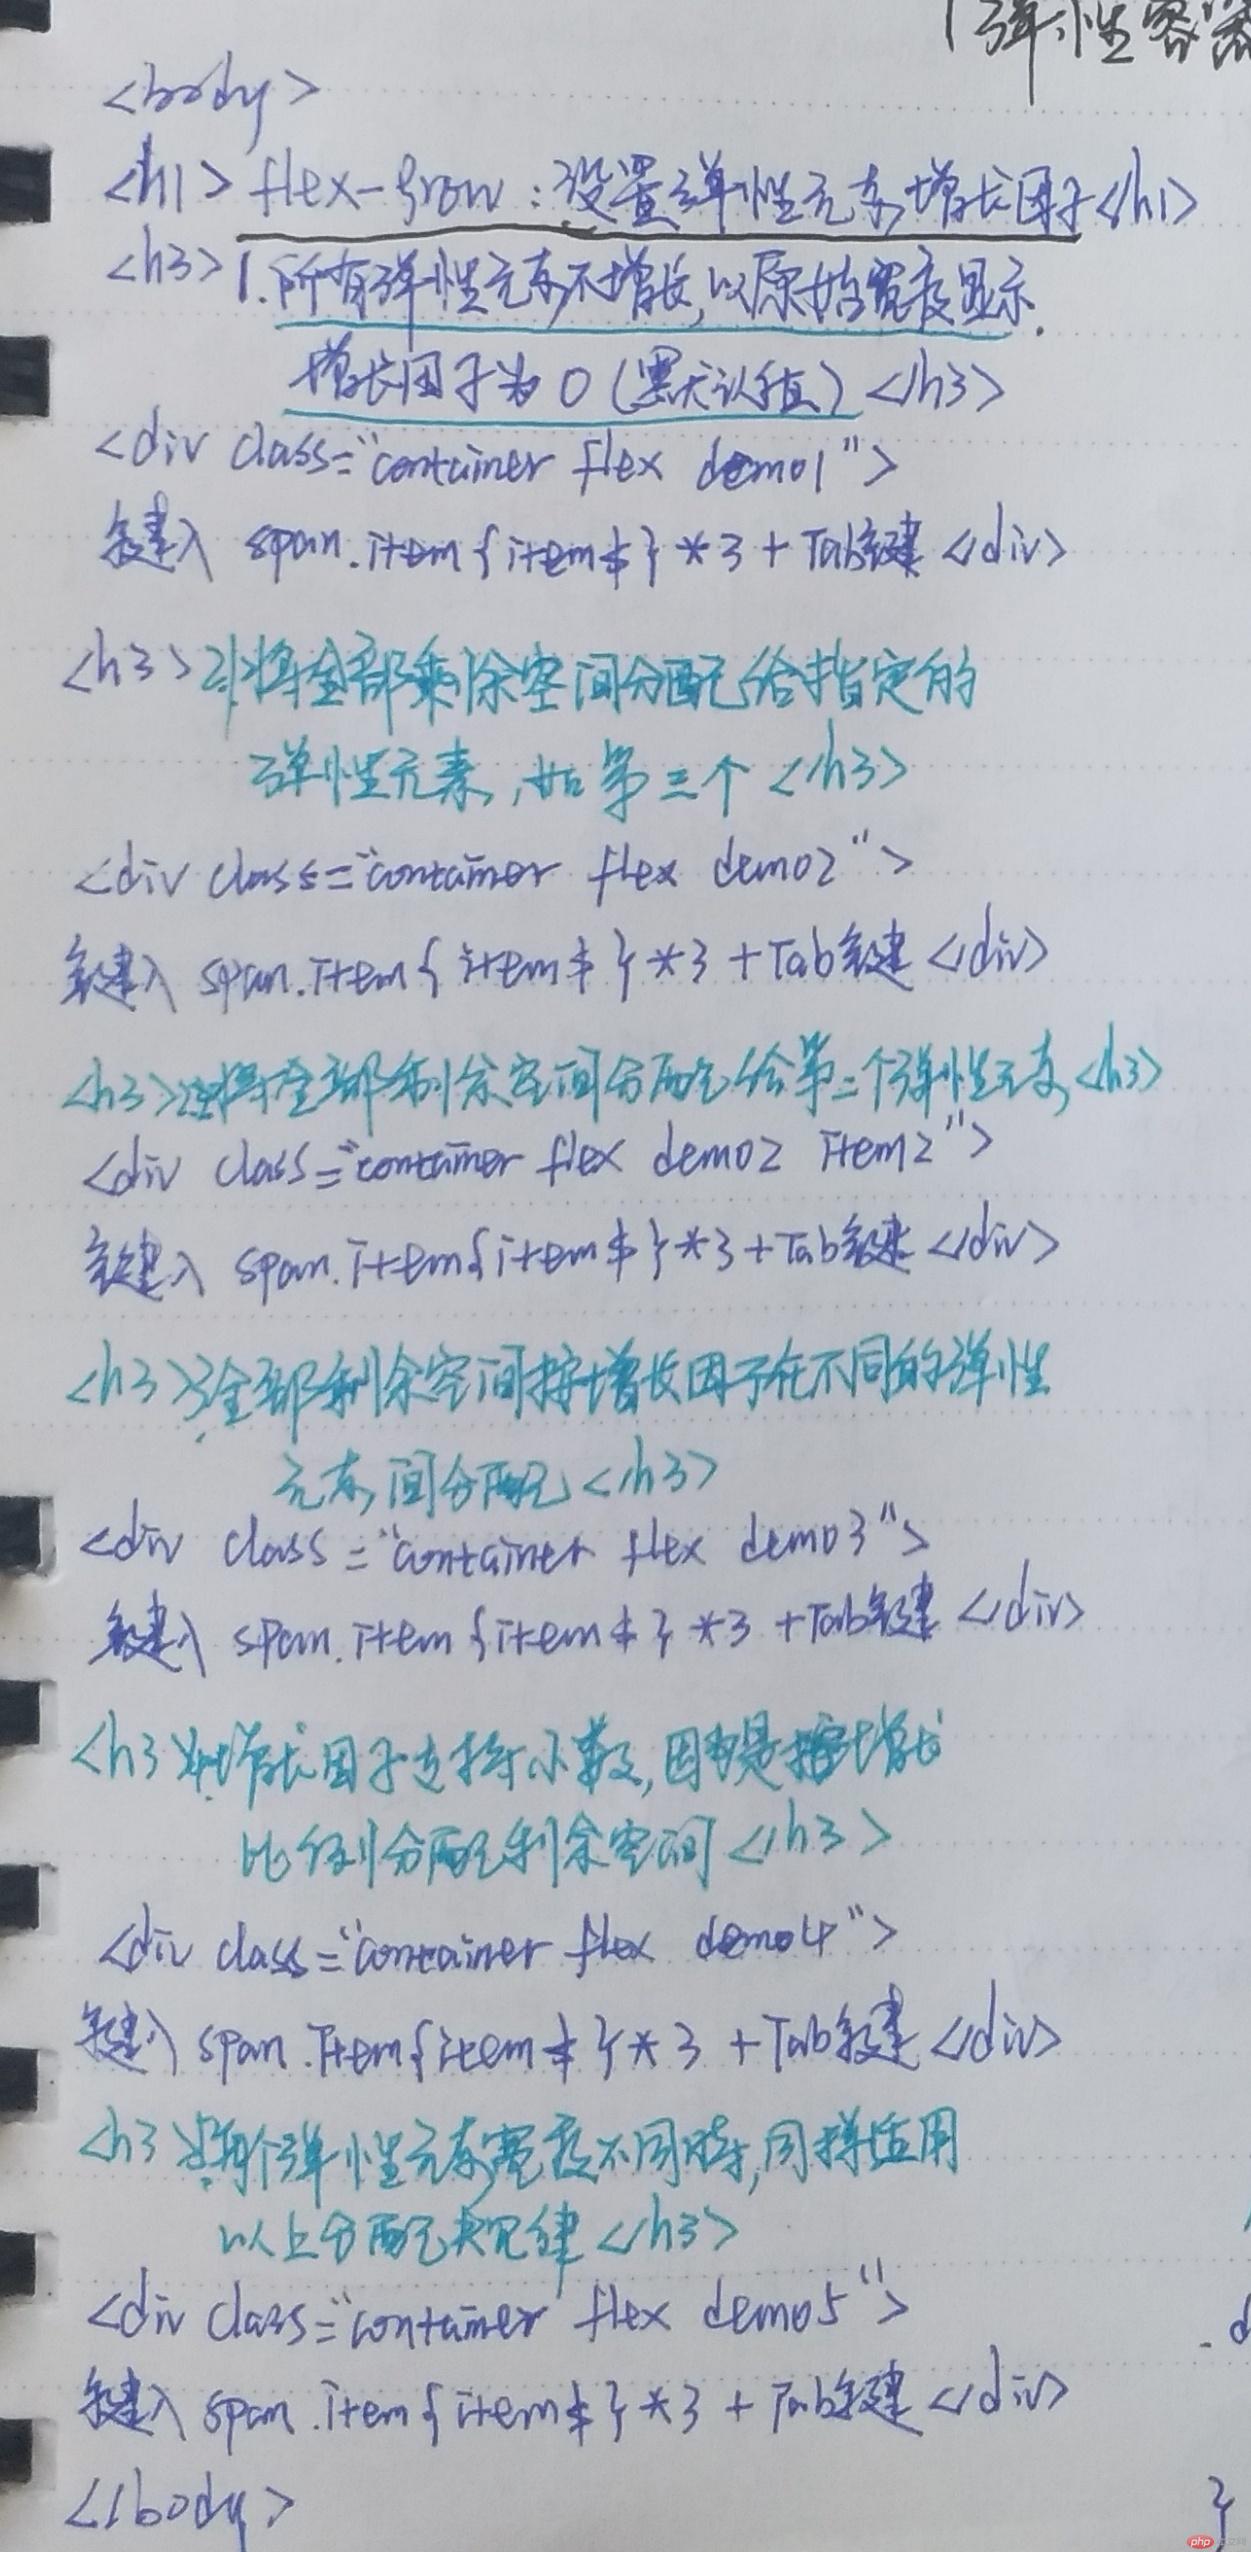 弹性容器
<body>
<h1> flex-grow:设置弹性元素增长因子</h1>
<h3>1.所有弹性元素不增长,以原始宽度显示.
增长因子为0(默认值)</h3>
<div class="container flex demo1">
键入 span.item{item$}*3+Tab键</div>
<h3>2.将全部剩余空间分配给指定的
弹性元素,如第三个</h3>
<div class="container flex demo2">
键入 span.item{item$}*3+Tab键</div>
<h3>将全部剩余空间分配给第二个弹性元素<h3>
<div class="container flex demo2 item2">
键入 span.item{item$}*3+Tab键</div>
<h3>3.全部剩余空间按增长因子在不同的弹性
元素间分配</h3>
<div class="container flex demo3">
键入 span.item{item$}*3+Tab键</div>
<h3>4.增长因子支持小数,因为是按增长
比例分配剩余空间</h3>
<div class="container flex demo4">
键入 span.item{item$}*3+Tab键</div>
<h3>5.每个弹性元素宽度不同时,同样适用
以上分配规律</h3>
<div class="container flex demo5">
键入 span.item{item$}*3+Tab键</div>
</body>
}
php